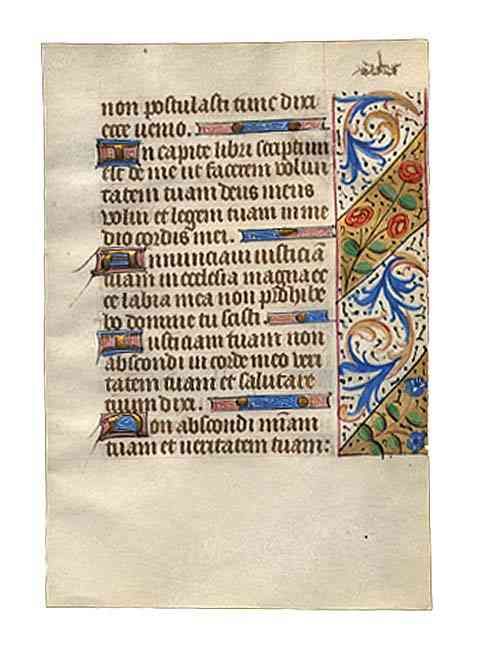 non postulasti tunc dixi
ecce uenio.
In capite libri scriptum
est de me ut facerem volun
tatem tuam deus meus
volui et legem tuam in me
dio cordis mei.
Annunciaui iusticiã
tuam in ecclesia magna ec
ce labia mea non prohibe
bo domine tu scisti.
Iusticiam tuam non
abscondi in corde meo veri
tatem tuam et salutare
tuum dixi.
Non abscondi mĩam
tuam et ueritatem tuam: